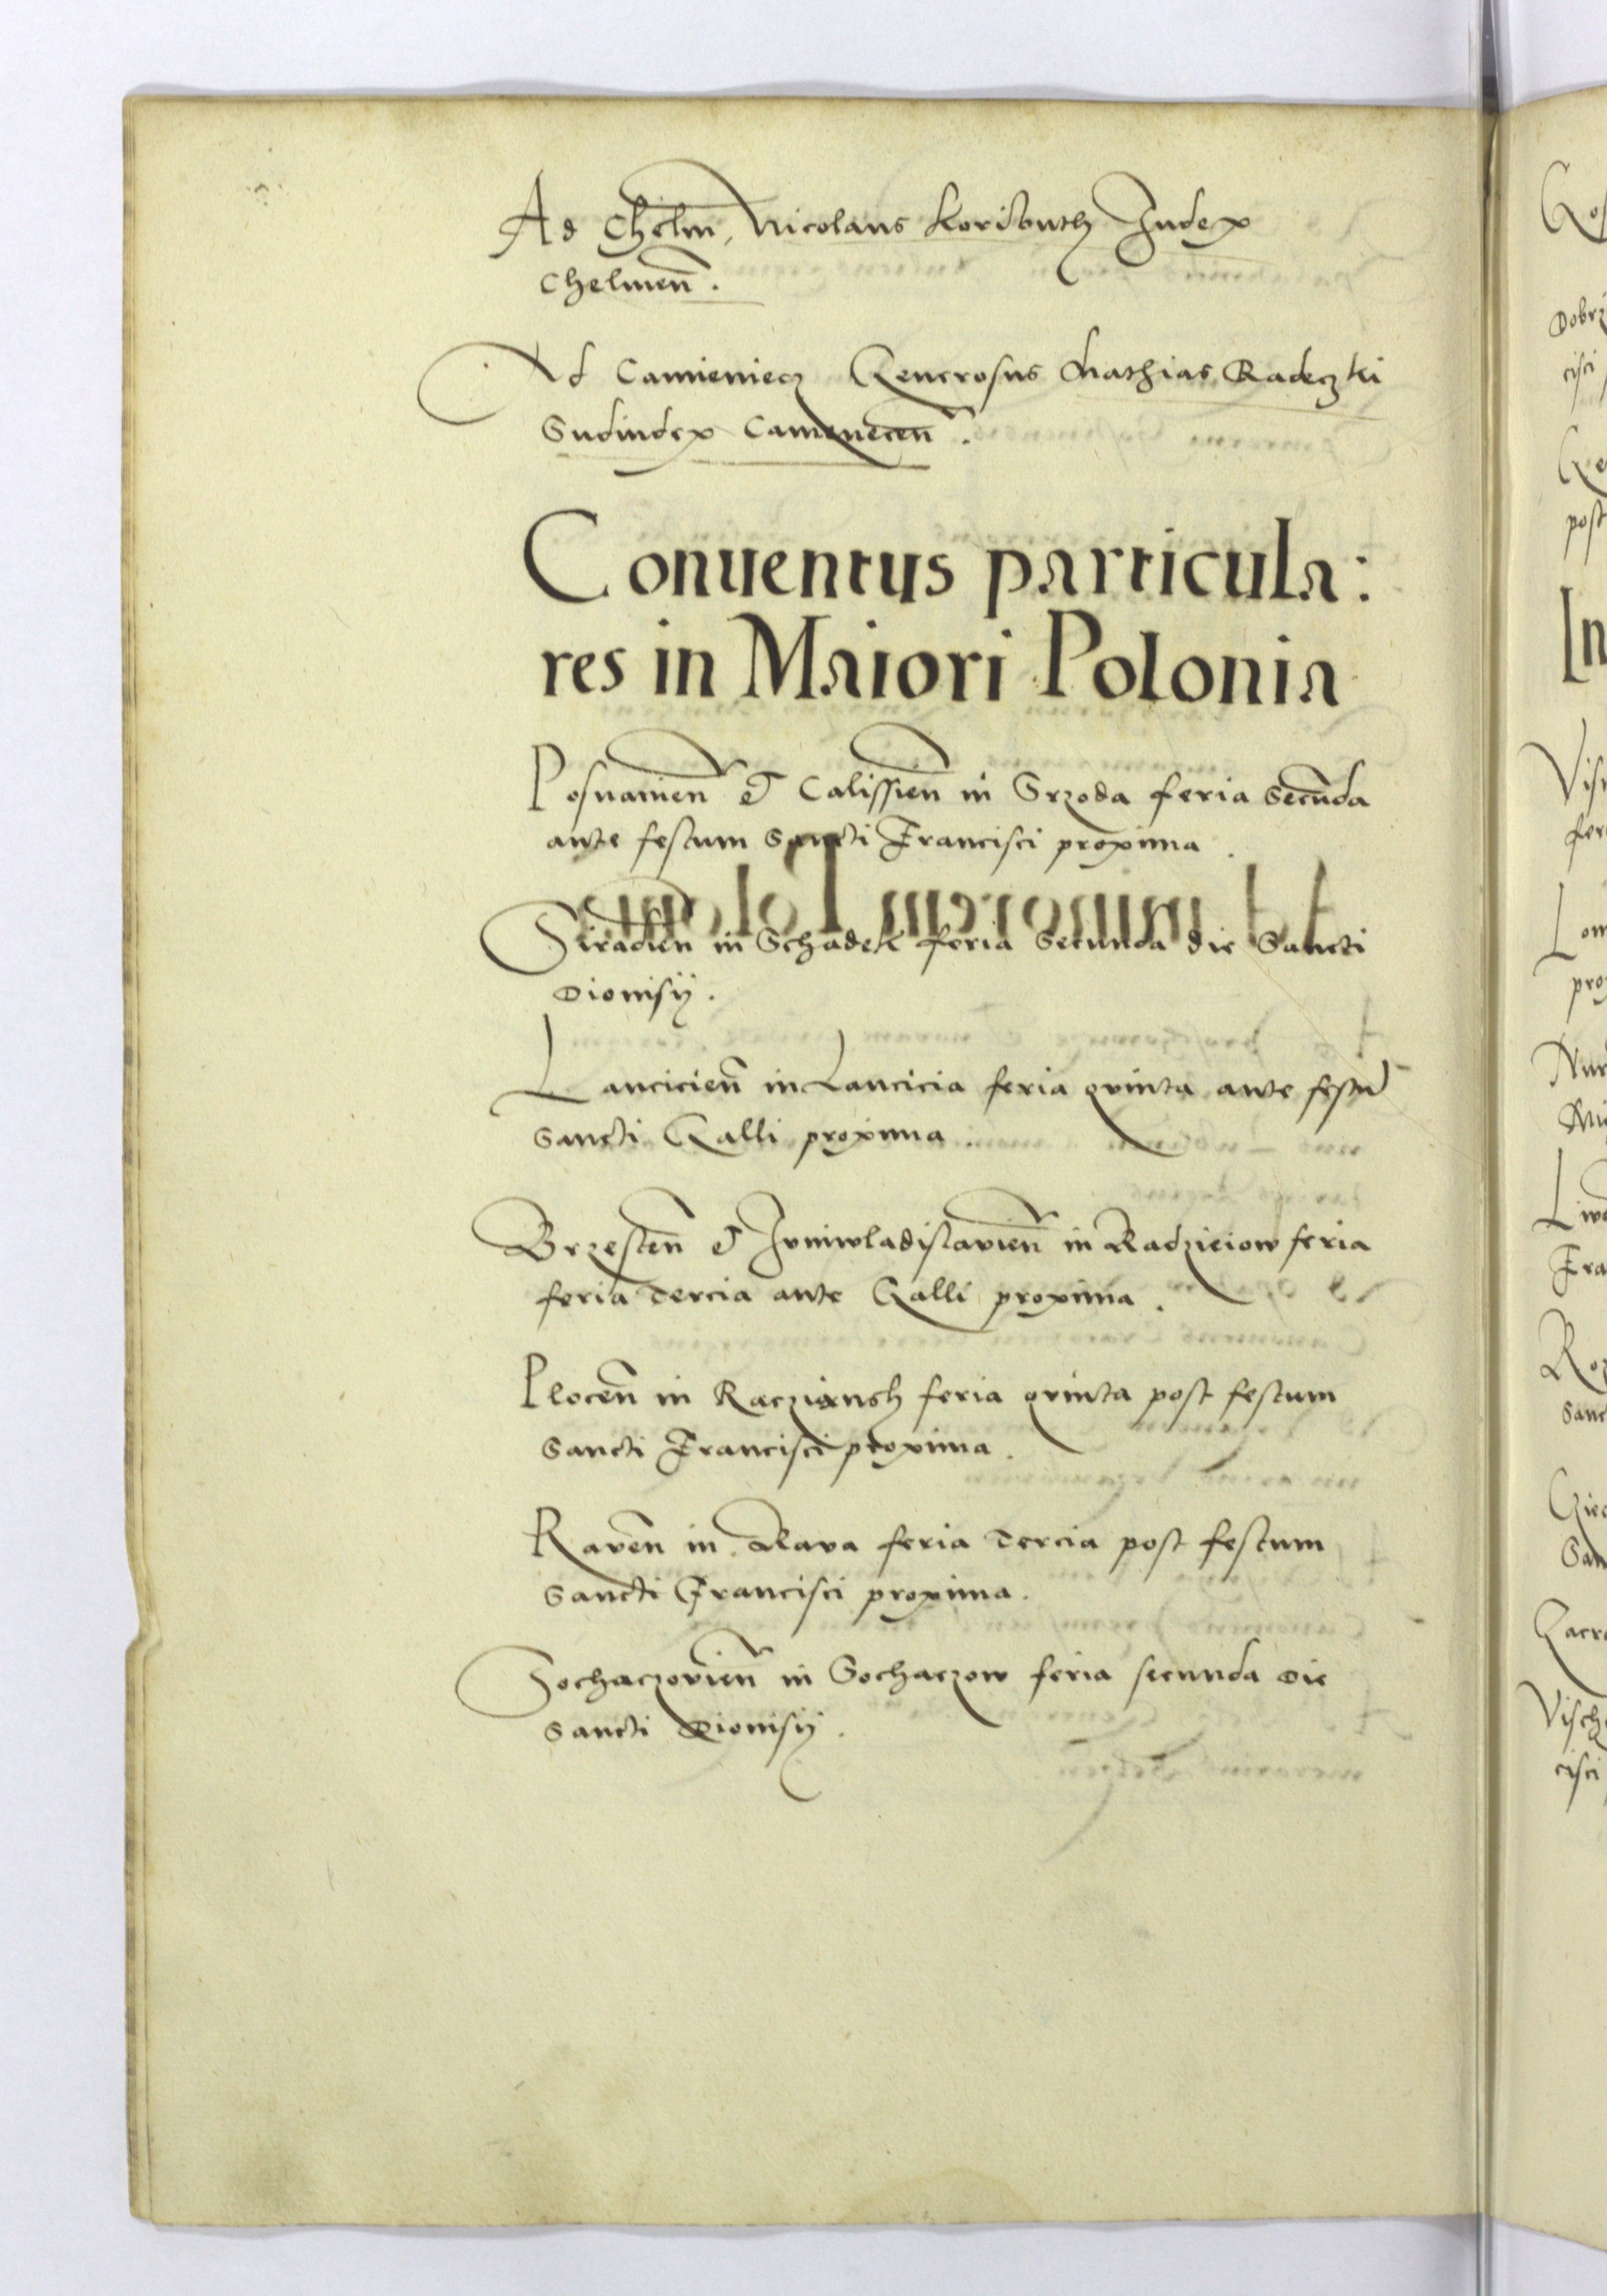 Ad Chelm, Nicolaus Koributh Iudex
Chelmen̄.
Ad Camieniecz Generosus Mathias Radeczki
Subiudex Camenecen̄.
Conuentus particula:
res in Maiori Polonia
Posnanien̄ et Calissien̄ in Srzoda feria secunda
ante festum Sancti Francisci proxima.
Siradien̄ in Schadek feria Secunda die Sancti
Dionisij.
Lancicien̄ in Lancicia feria quinta ante festū
Sancti Galli proxima.
Brzesten̄ et Iuniwladislauien̄ in Radzieiow feria
feria Tercia ante Galli proxima.
Plocen̄ in Racziansh feria quinta post festum
Sancti Francisci proxima.
Raven̄ in Rava feria Tercia post festum
Sancti Francisci proxima.
Sochaczovien̄ in Sochaczow feria secunda die
Sancti Dionisij.